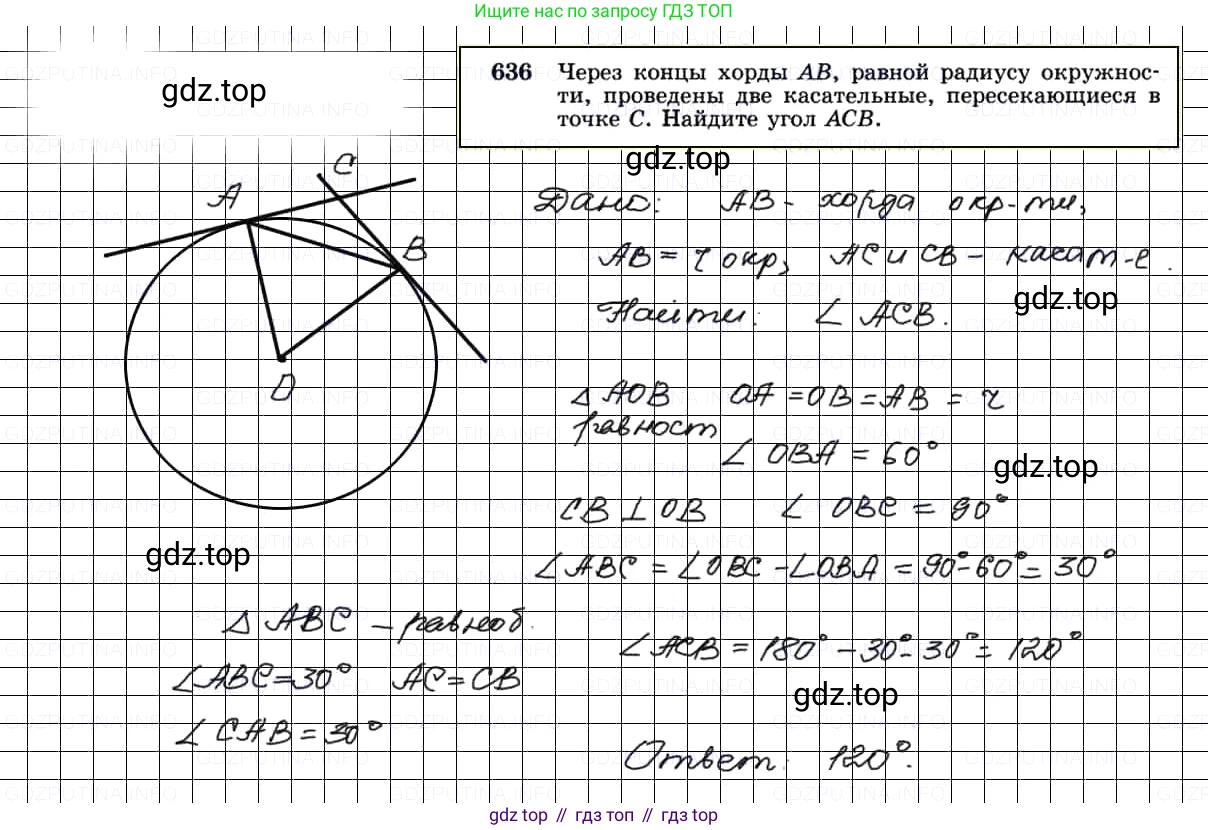 Ищите нас по запросу ГДЗ ТОП
636 Через концы хорды AB, равной радиусу окружнос-
ти, проведены две касательные, пересекающиеся в
точке C. Найдите угол ACB.
gdz.top
gdz.top
C
A
B
O
Дано: AB - хорда окр-ти,
AB = r окр, AC и CB - касат-е.
gdz.top
Найти: ∠ ACB.
△ AOB OA = OB = AB = r
равност
∠ OBA = 60°
gdz.top
CB ⊥ OB ∠ OBC = 90°
gdz.top
∠ABC = ∠OBC - ∠OBA = 90° - 60° = 30°
△ ABC - равноб.
∠ABC = 30° AC = CB
∠ CAB = 30°
∠ ACB = 180° - 30° - 30° = 120°
gdz.top
Ответ: 120°.
GDZPUTINA.INFO
gdz top // гдз топ // gdz top